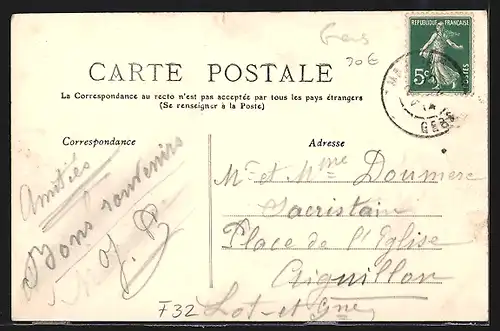 Gers
30€
REPUBLIQUE FRANÇAISE
5c
POSTES
GERS
CARTE POSTALE
La Correspondance au recto n'est pas acceptée par tous les pays étrangers
(Se renseigner à la Poste)
Correspondance
Adresse
Amitiés
Bons souvenirs
Mr et Mme Doumerc
Sacristain
Place de l'Eglise
Aiguillon
Lot-et-Gne
F32